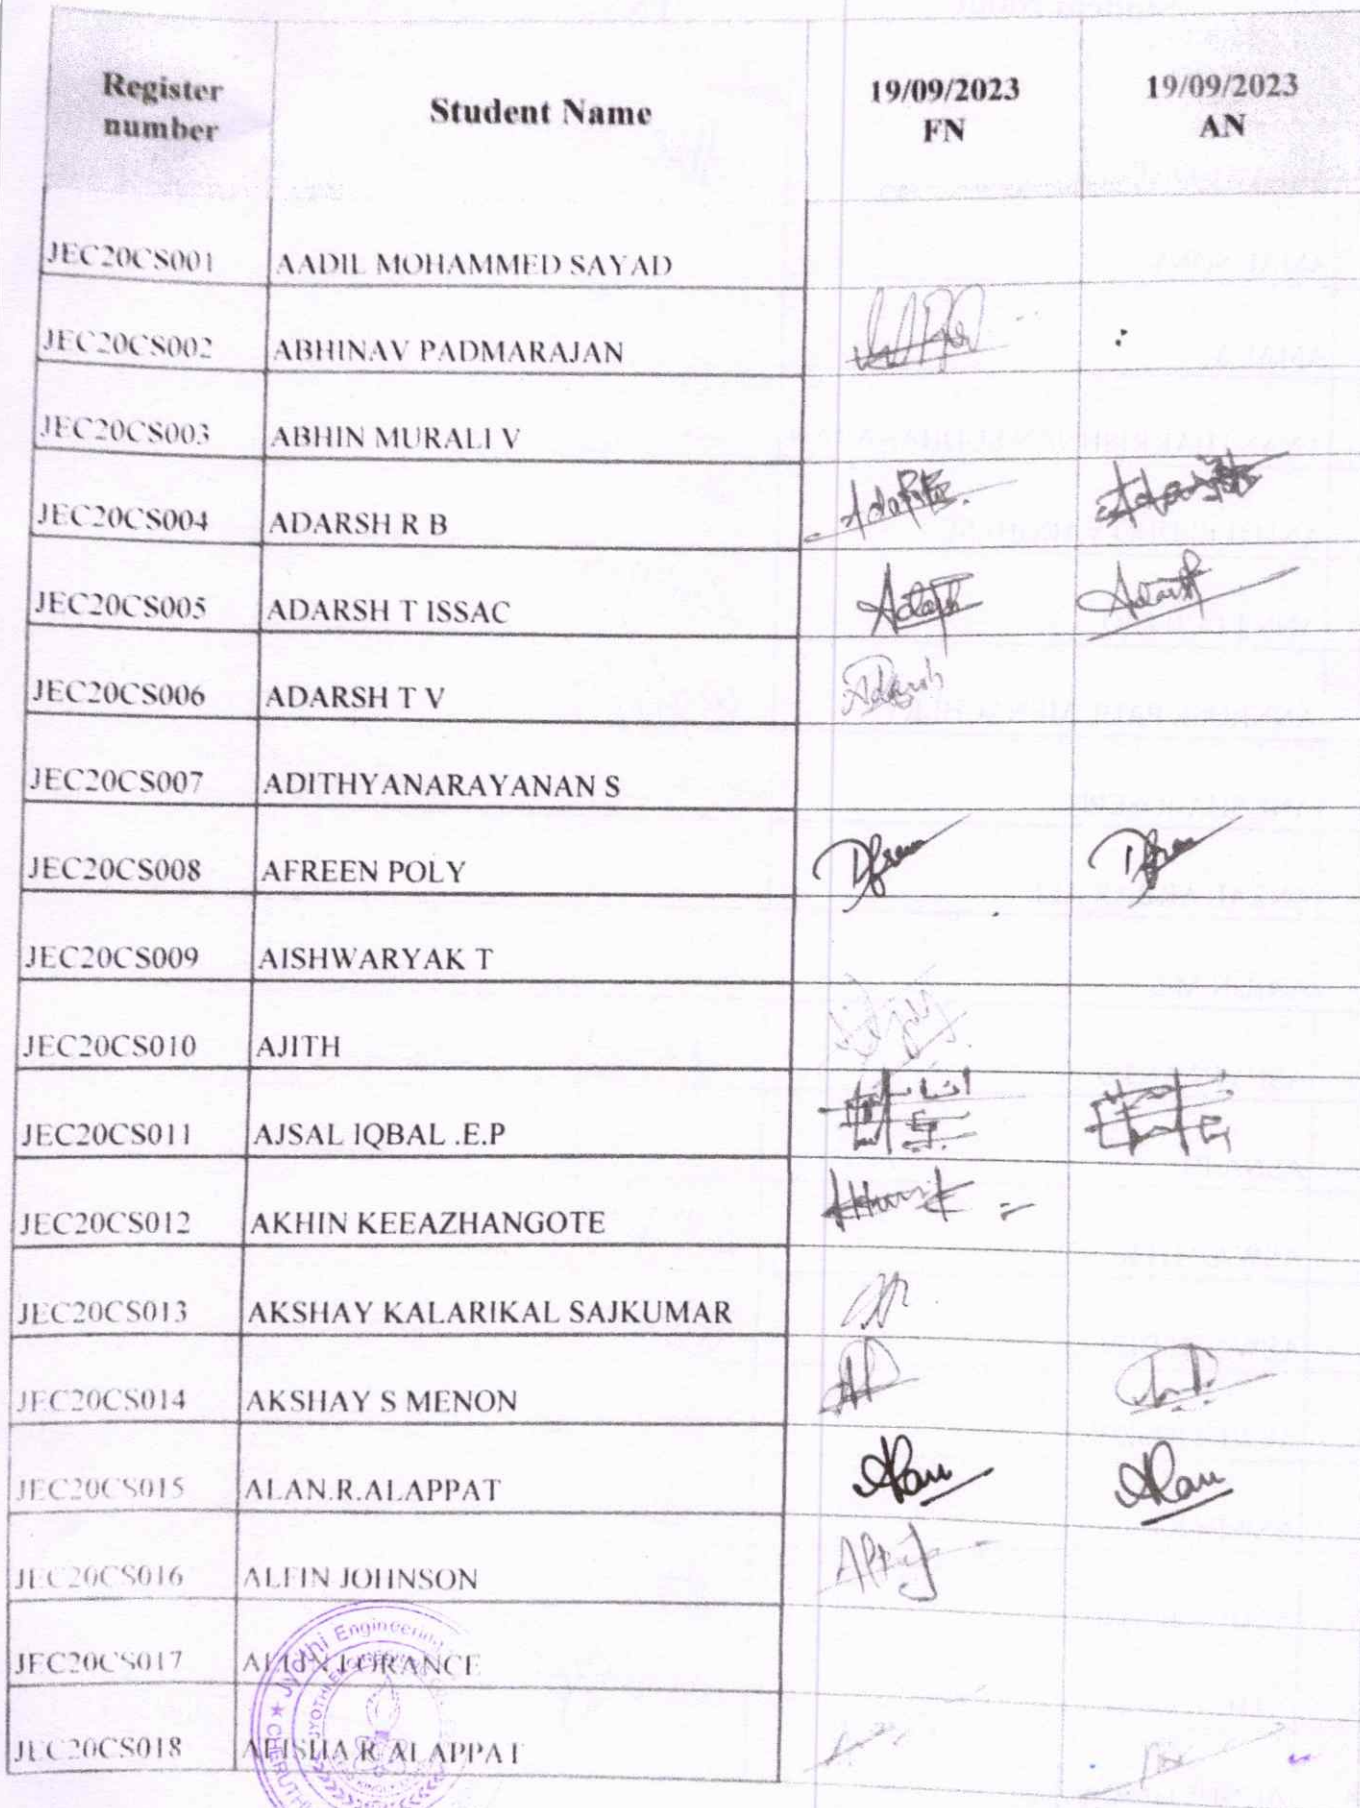 Register number Student Name 19/09/2023 FN 19/09/2023 AN
JEC20CS001 AADIL MOHAMMED SAYAD
JEC20CS002 ABHINAV PADMARAJAN
JEC20CS003 ABHIN MURALI V
JEC20CS004 ADARSH R B Adarsh
JEC20CS005 ADARSH T ISSAC Adarsh Adarsh
JEC20CS006 ADARSH T V Adarsh
JEC20CS007 ADITHYANARAYANAN S
JEC20CS008 AFREEN POLY
JEC20CS009 AISHWARYAK T
JEC20CS010 AJITH
JEC20CS011 AJSAL IQBAL .E.P
JEC20CS012 AKHIN KEEAZHANGOTE
JEC20CS013 AKSHAY KALARIKAL SAJKUMAR
JEC20CS014 AKSHAY S MENON
JEC20CS015 ALAN.R.ALAPPAT Alan Alan
JEC20CS016 ALFIN JOHNSON
JEC20CS017 LORANCE
JEC20CS018 R ALAPPAT
Jyothi Engineering